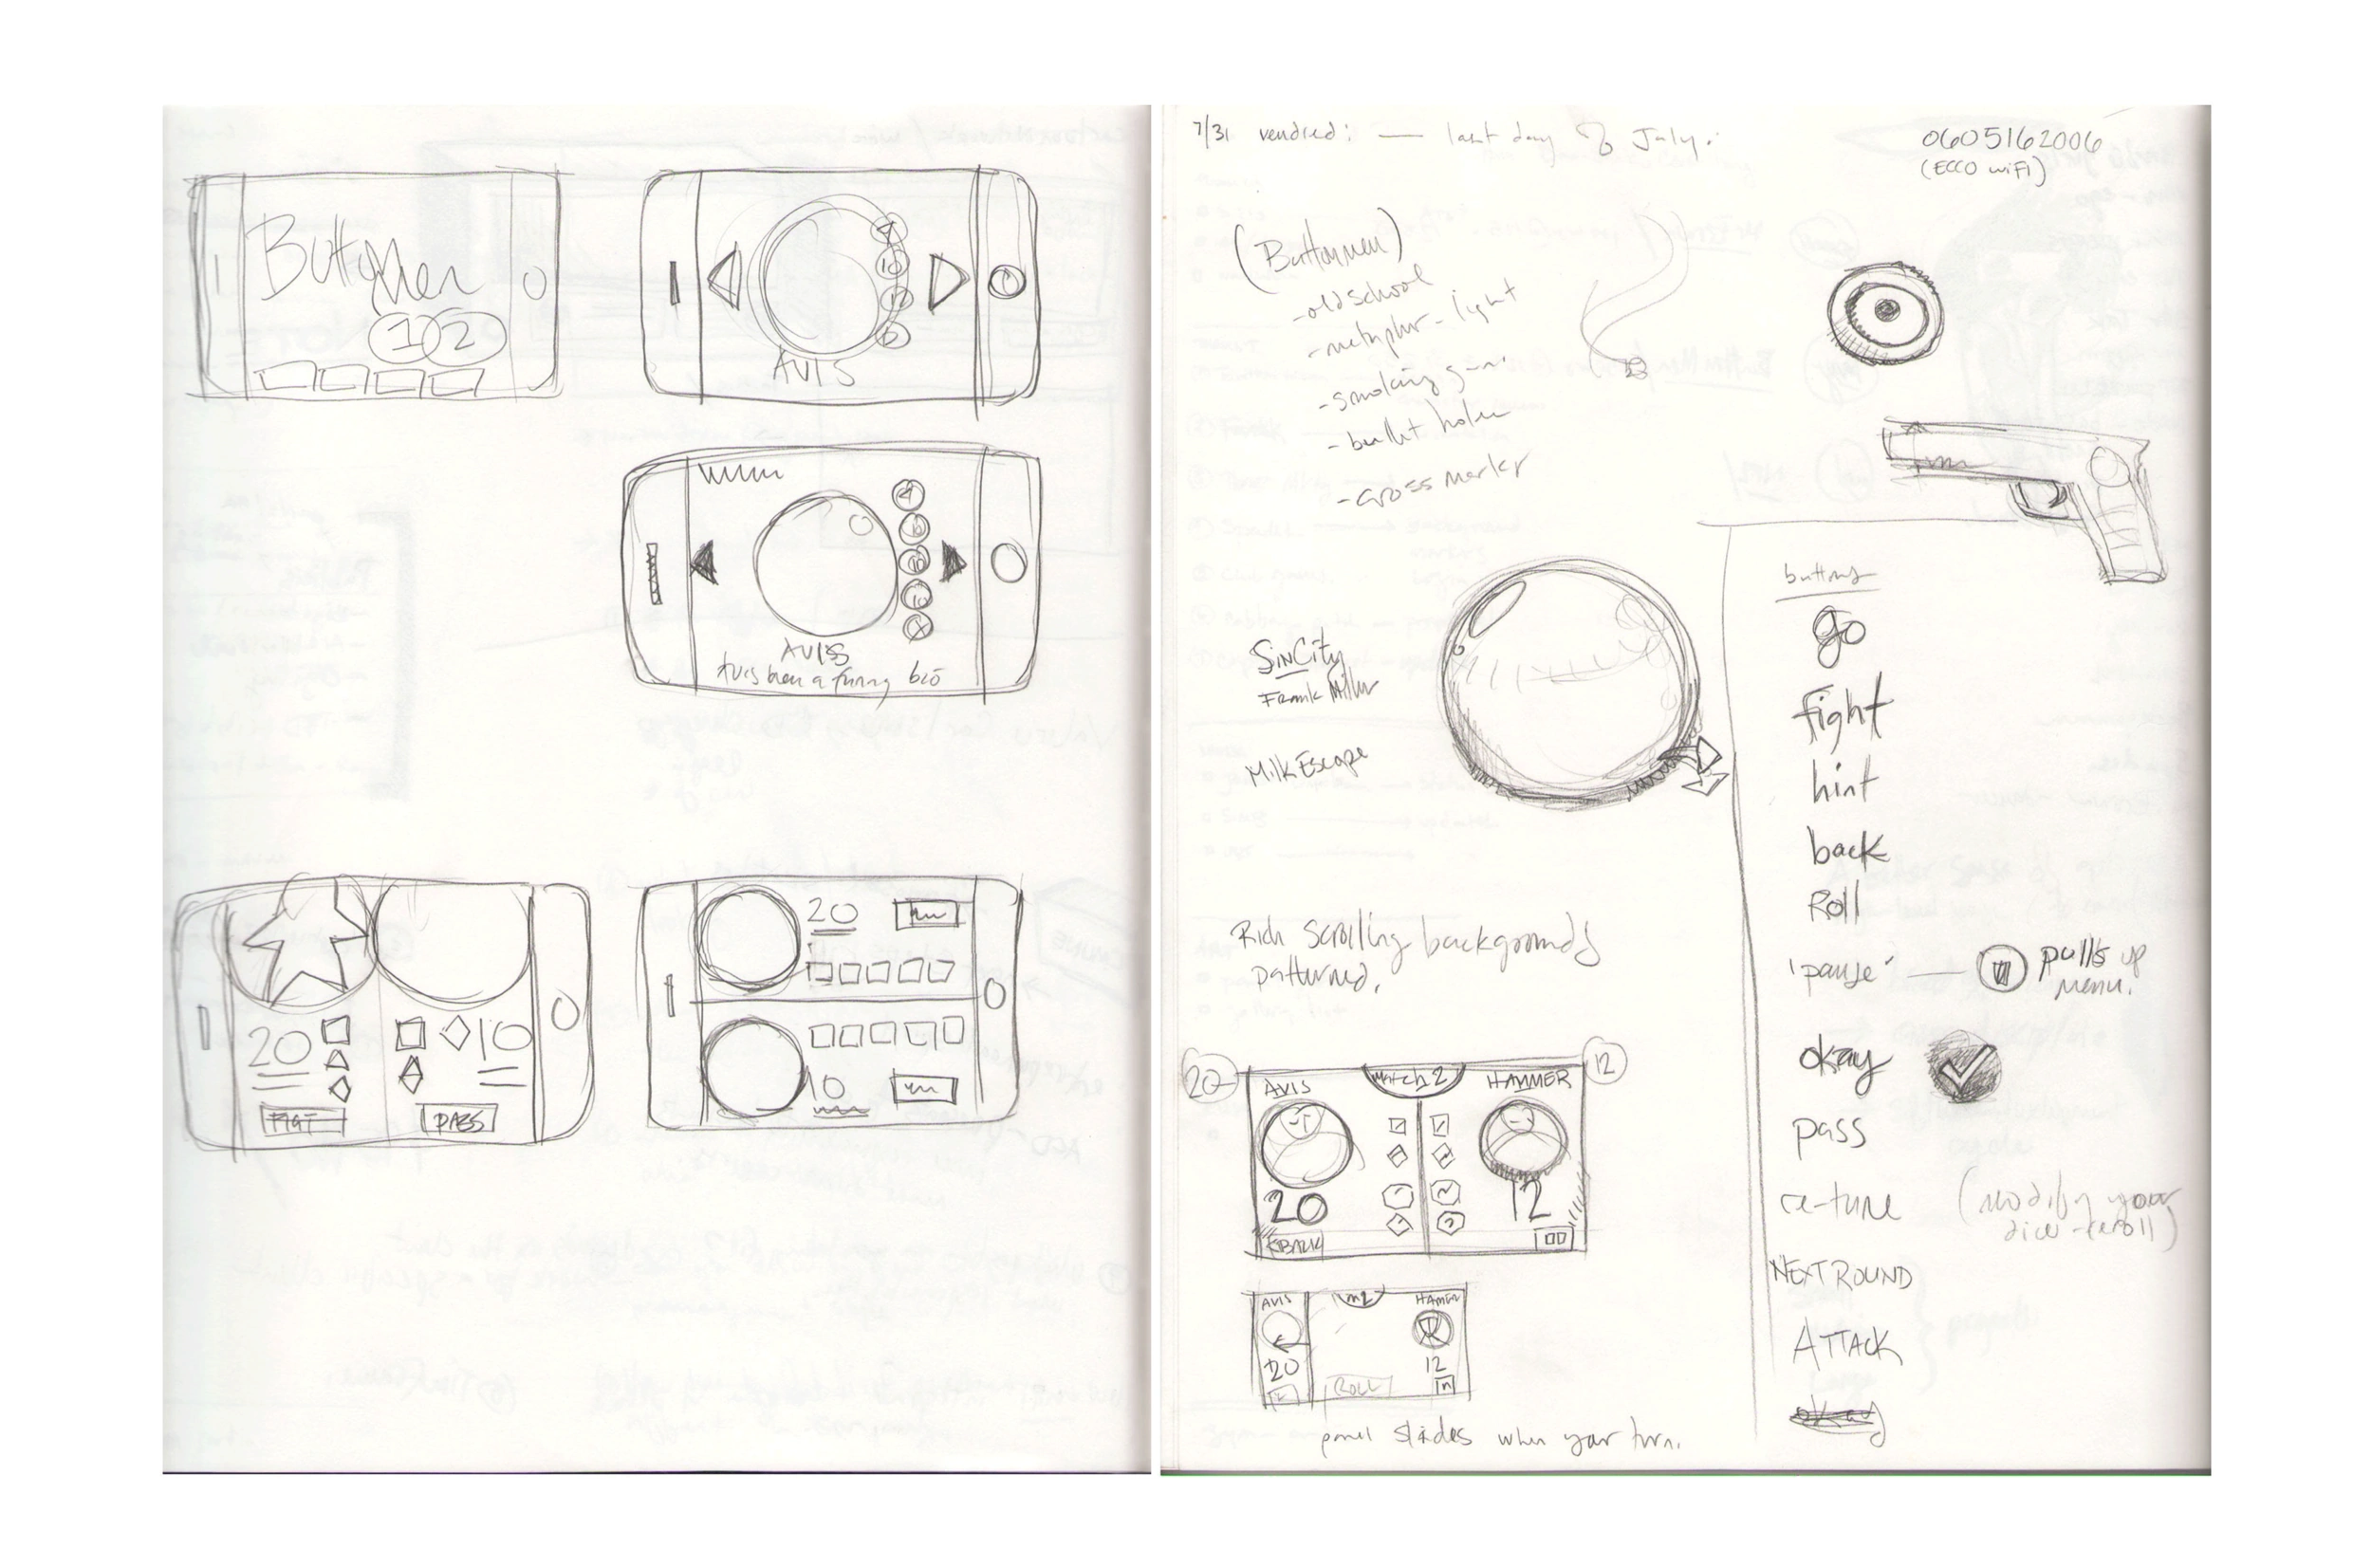 ButtonMen
1 2
AVIS
10
AVIS
Avis been a funny bio
20
10
FIGT
PASS
20
10
7/31 vendredi — last day of July.
0605162006
(ECCO WiFi)
(Buttonmen)
- old school
- metaphor - light
- smoking gun
- bullet holes
- cross marks
SinCity
Frank Miller
Milk Escape
Rich scrolling backgrounds
patterned.
20
12
AVIS
match 2
HAMMER
20
12
BACK
AVIS
m2
HAMMER
20
12
ROLL
panel slides when your turn.
buttons
go
fight
hint
back
Roll
'pause' — pulls up
menu.
okay
pass
re-tune (modify your
dice - reroll)
NEXT ROUND
ATTACK
okay